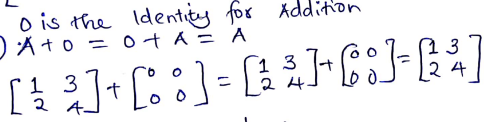 0 is the Identity for Addition
) A + 0 = 0 + A = A
[1 3
2 4] + [0 0
0 0] = [1 3
2 4] + [0 0
0 0] = [1 3
2 4]